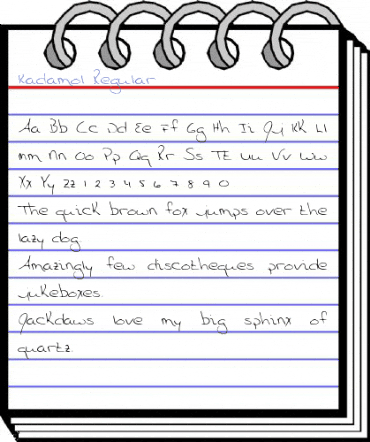 Kadamol Regular
Aa Bb Cc Dd Ee Ff Gg Hh Ii Jj KK Ll
mm Nn Oo Pp Qq Rr Ss TE uu Vv ww
Xx Yy Zz 1 2 3 4 5 6 7 8 9 0
The quick brown fox jumps over the
lazy dog
Amazingly few discotheques provide
jukeboxes.
Jackdaws love my big sphinx of
quartz.